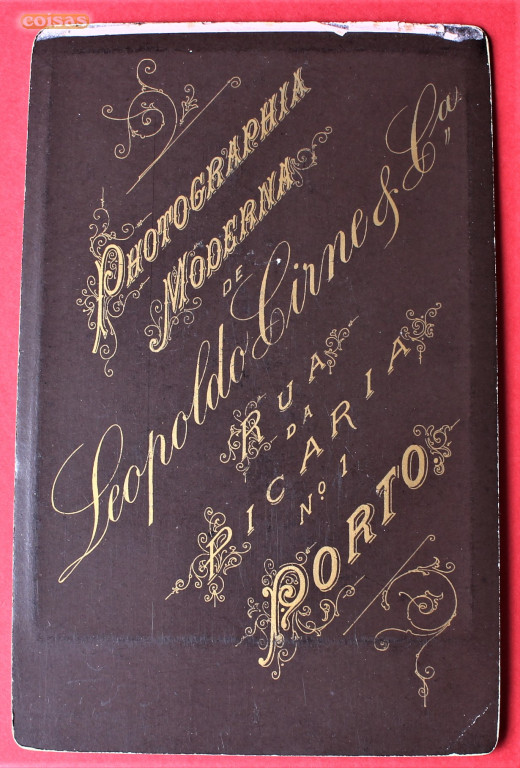 coisas
PHOTOGRAPHIA
MODERNA
DE
Leopoldo Cirne & Ca
RUA
DA
PICARIA
Nº 1
PORTO.